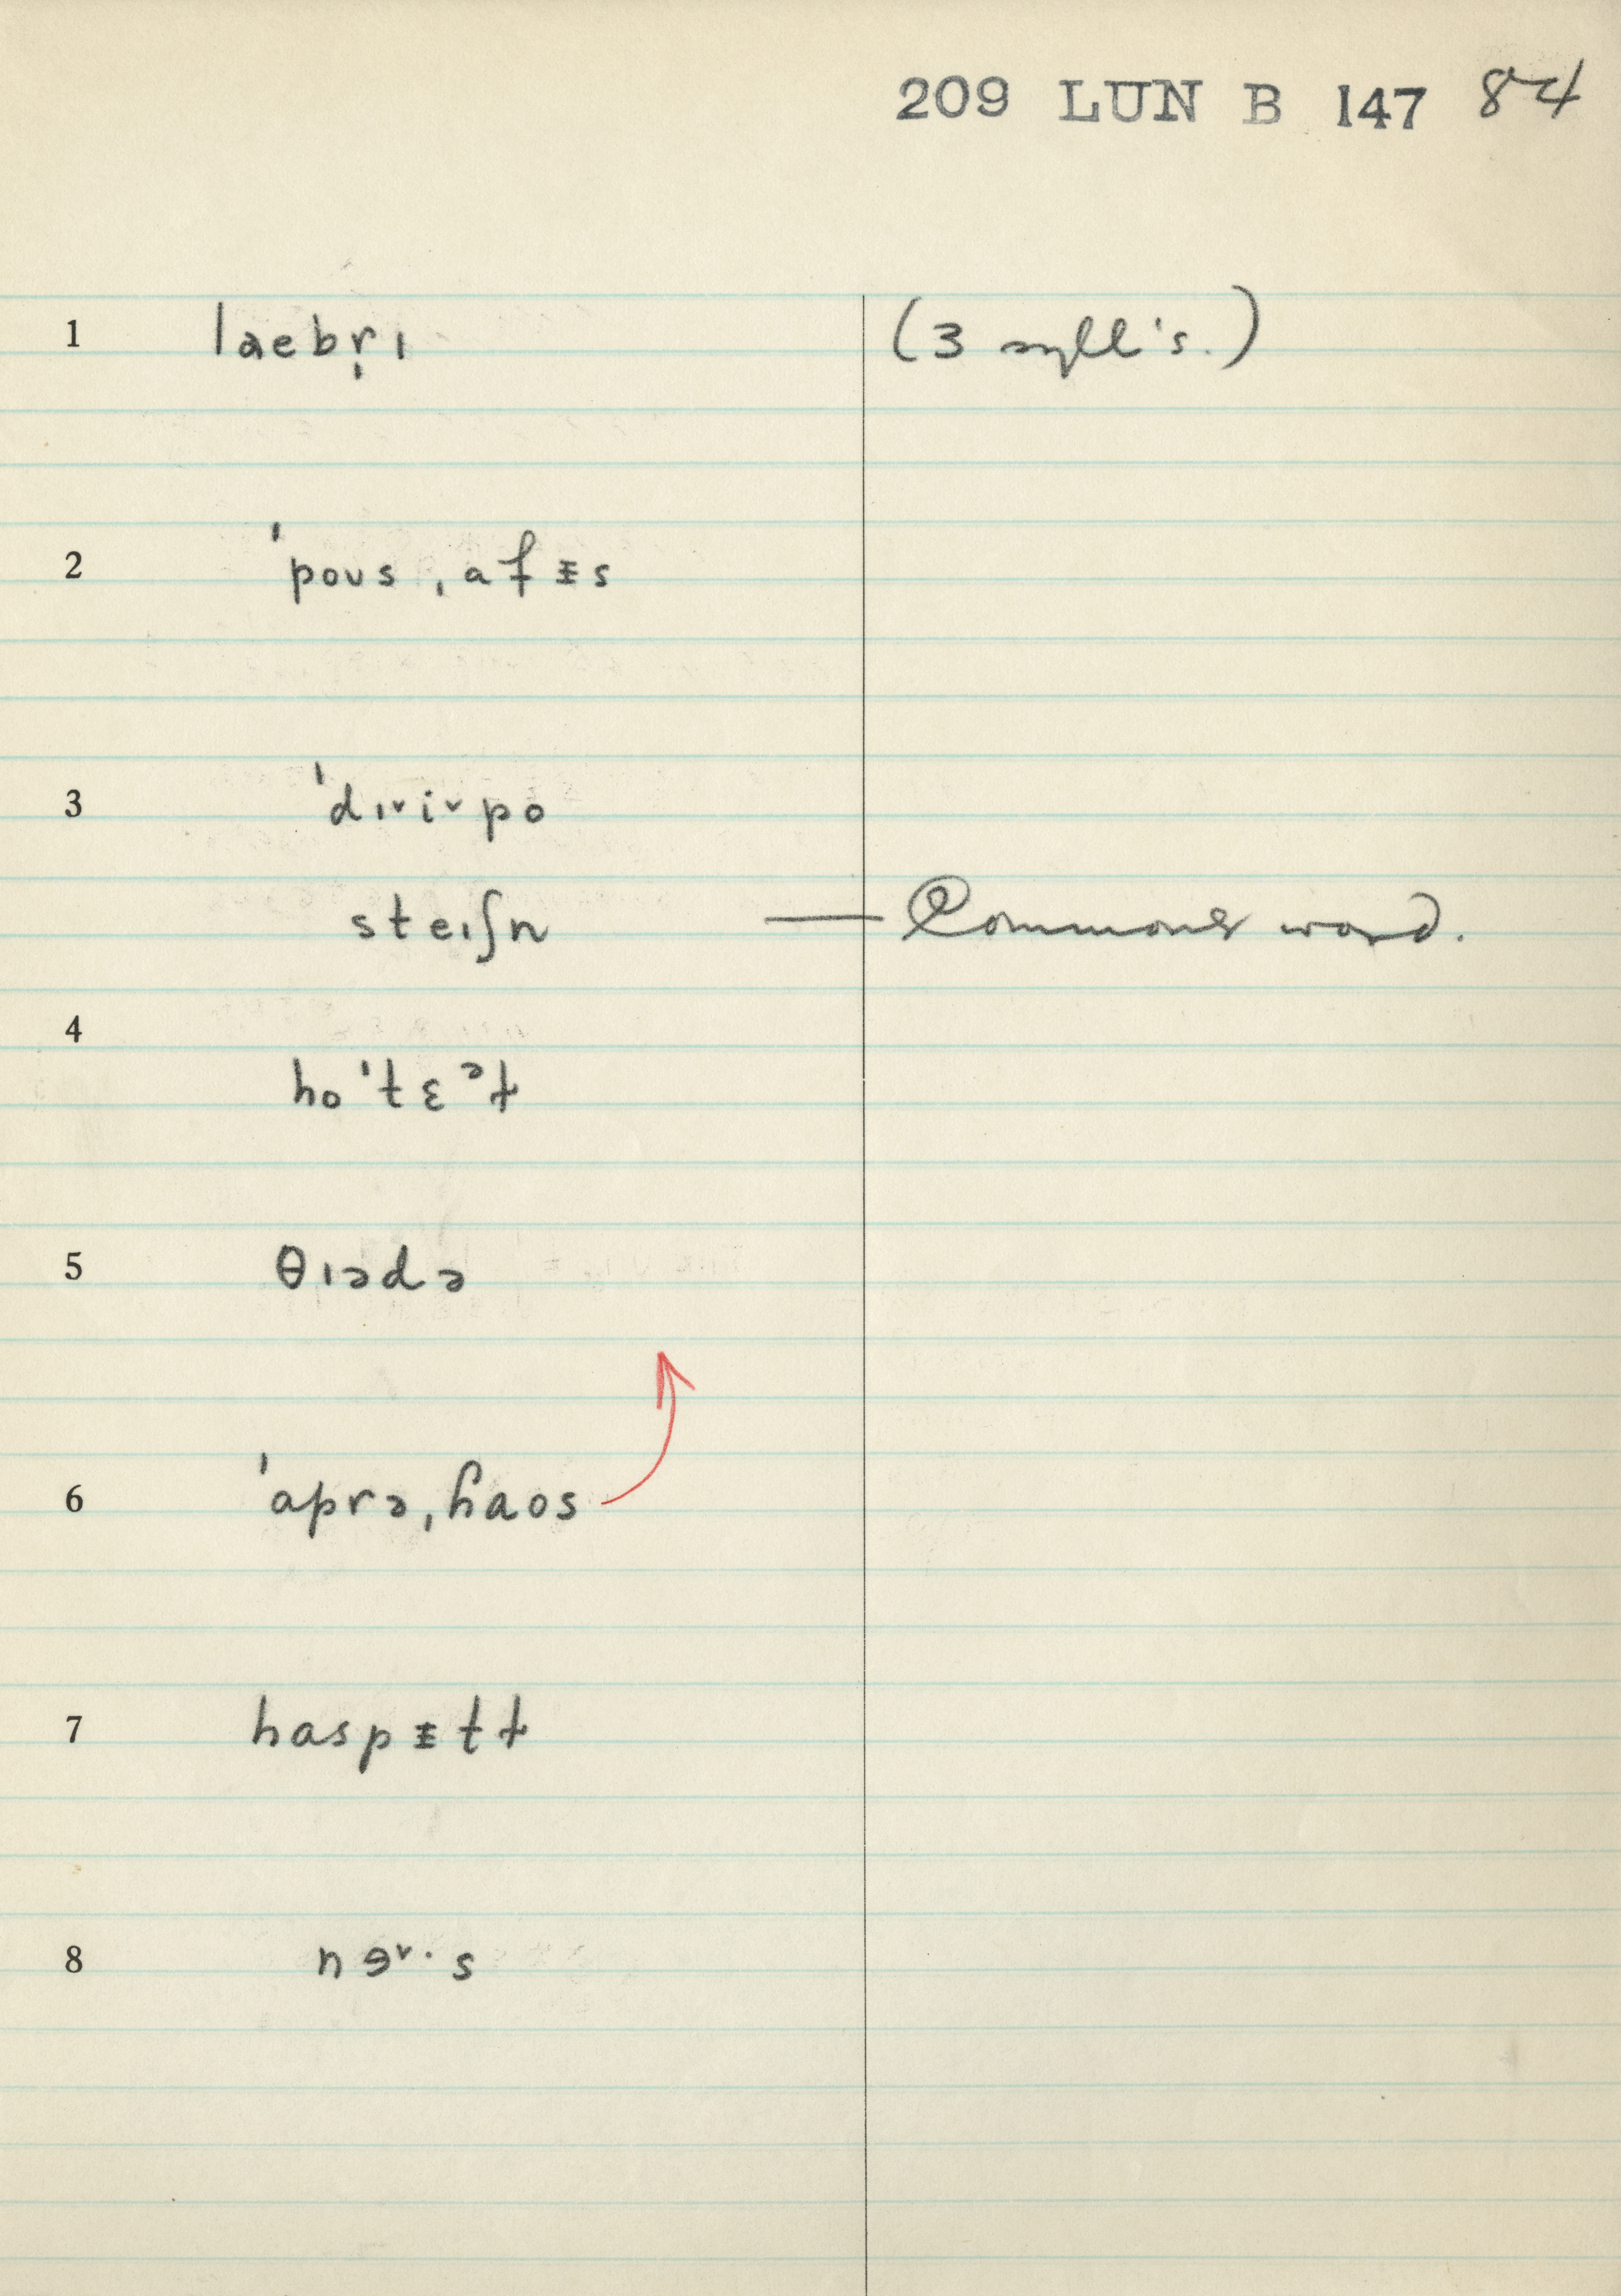 209 LUN B 147 84
1 laebr̩ɪ (3 syll's.)
2 ˈpoʊs ˌafᵻs
3 ˈdɪ˅i˅po
steɪʃn — Commoner word.
4
hoˈtɛᵊɫ
5 θɪədə
6 ˈaprəˌɦaos
7 haspᵻtɫ
8 nɘ˅·s